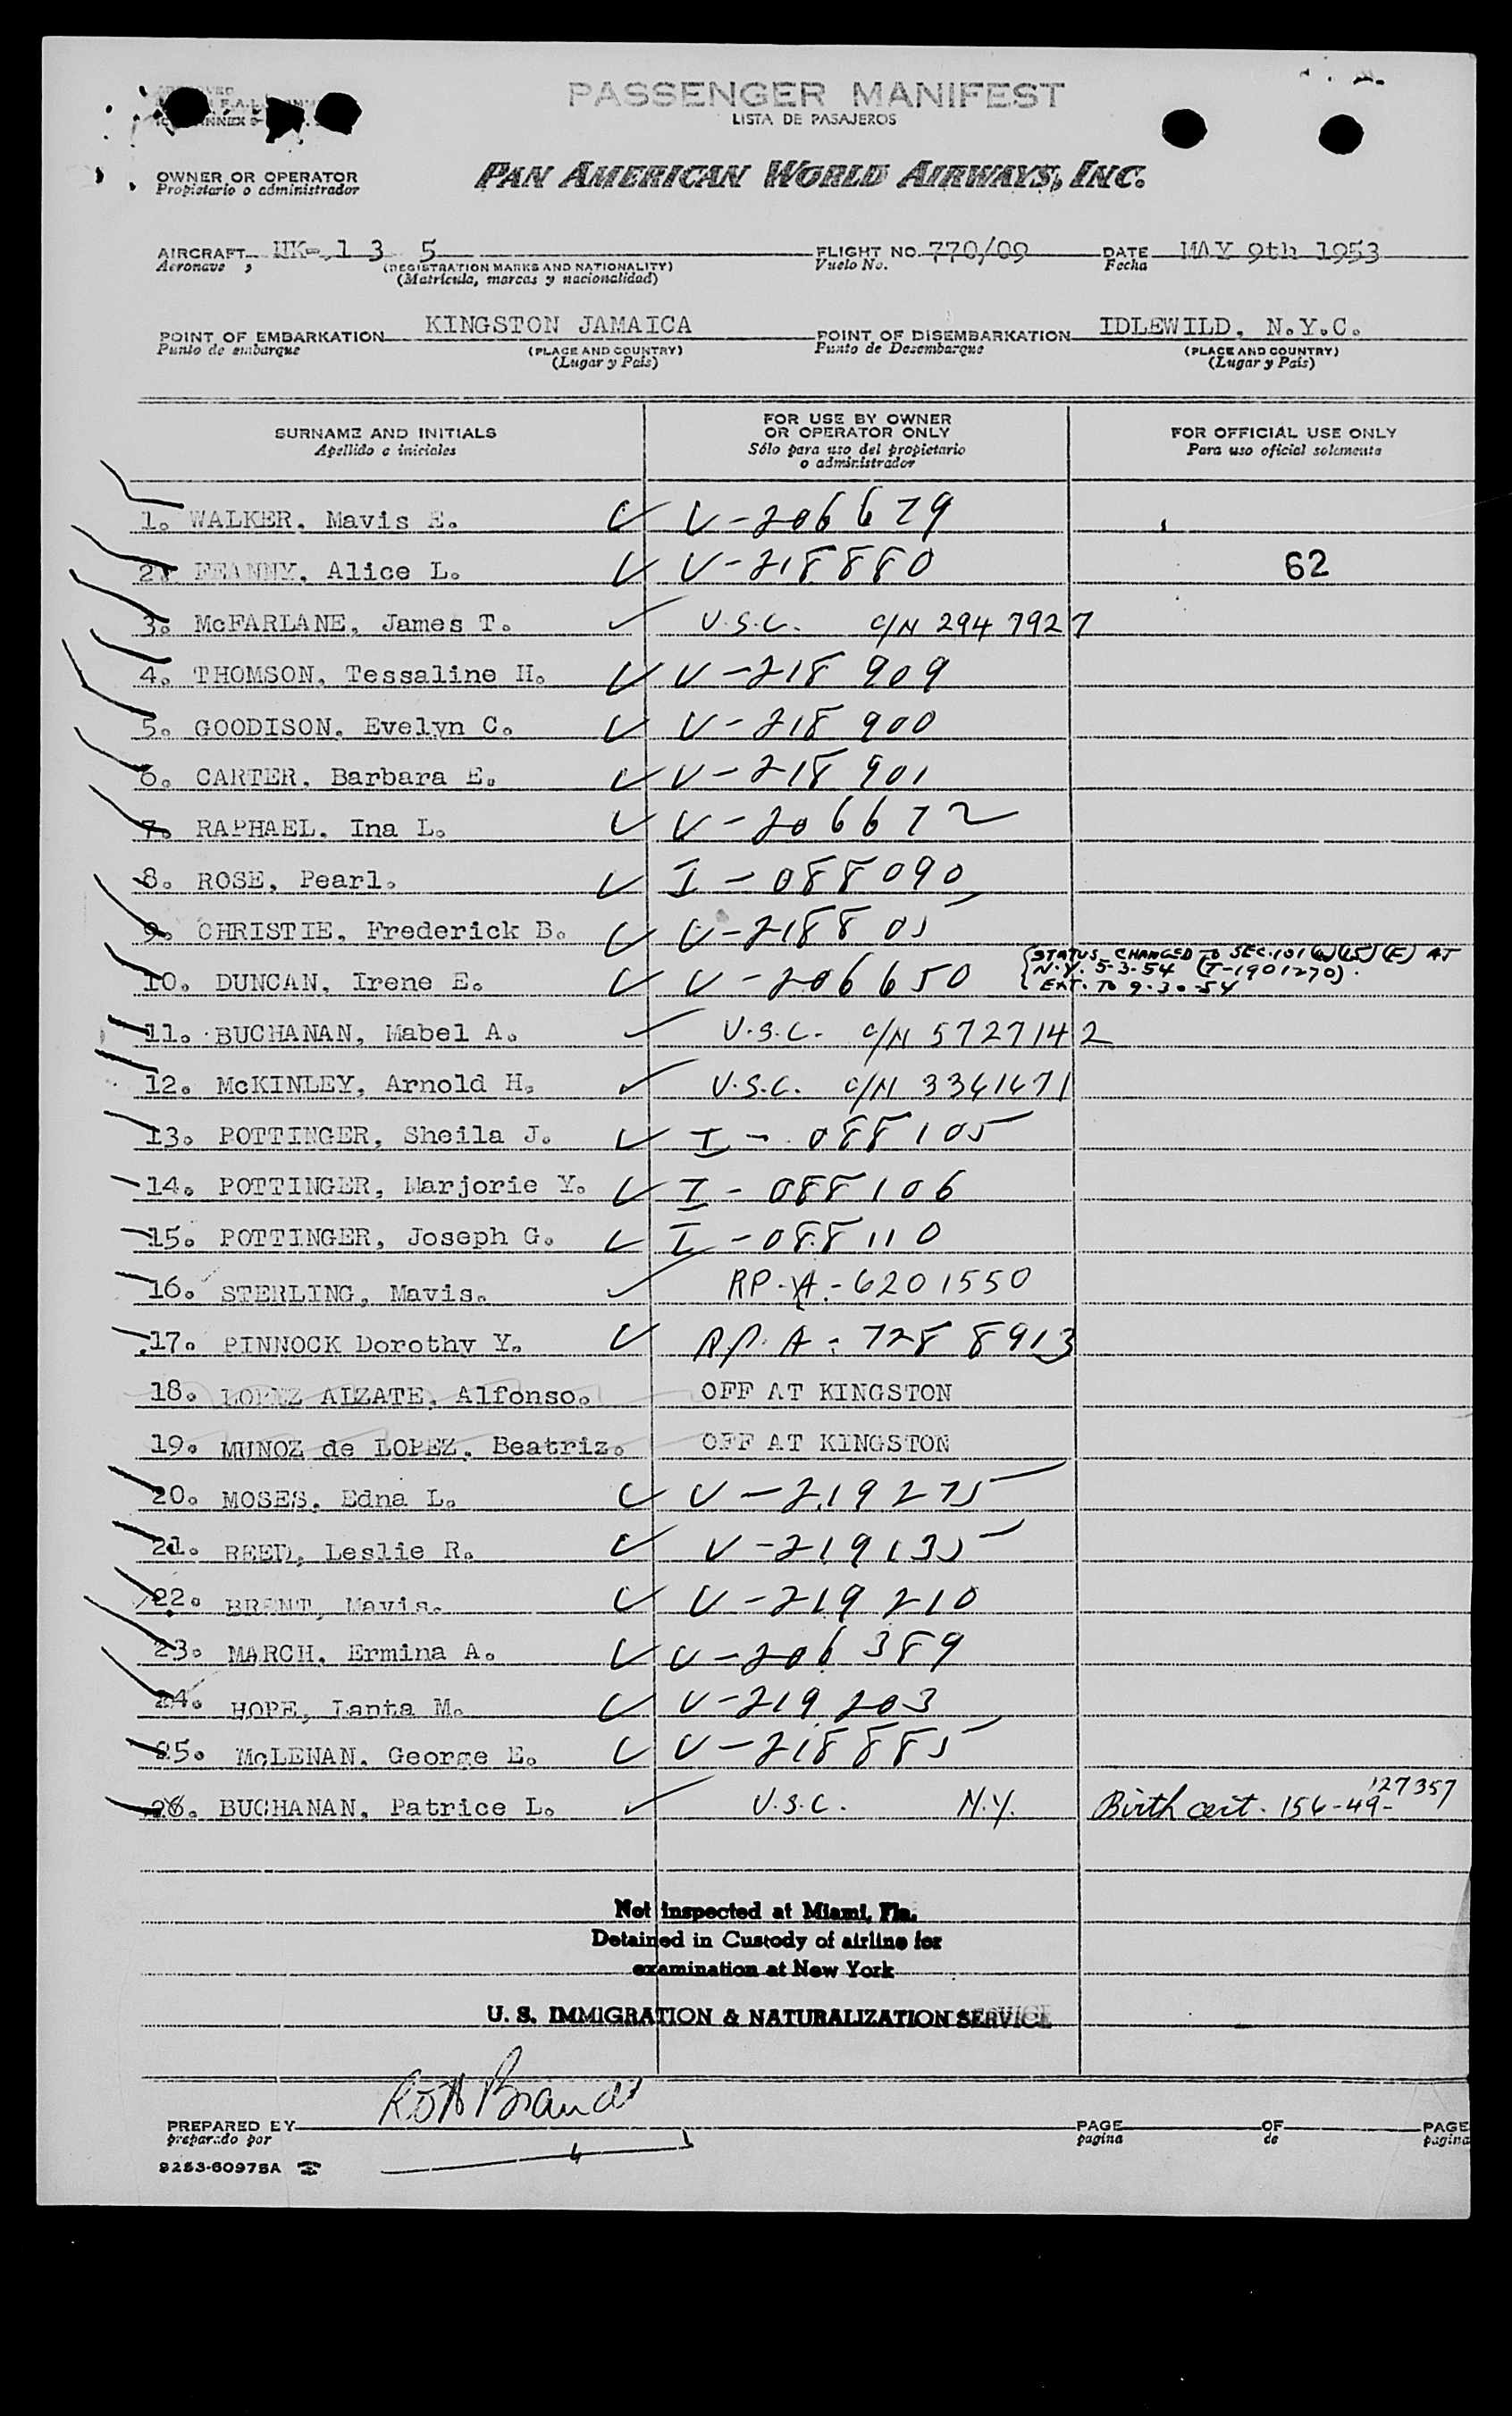 PASSENGER MANIFEST
LISTA DE PASAJEROS
OWNER OR OPERATOR
Propietario o administrador
PAN AMERICAN WORLD AIRWAYS, INC.
AIRCRAFT HK-,1 3 5 FLIGHT NO. 770/09 DATE MAY 9th 1953
Aeronave , (REGISTRATION MARKS AND NATIONALITY) Vuelo No. Fecha
(Matrícula, marcas y nacionalidad)
POINT OF EMBARKATION KINGSTON JAMAICA POINT OF DISEMBARKATION IDLEWILD, N.Y.C.
Punto de embarque (PLACE AND COUNTRY) Punto de Desembarque (PLACE AND COUNTRY)
(Lugar y País) (Lugar y País)
SURNAME AND INITIALS FOR USE BY OWNER OR OPERATOR ONLY FOR OFFICIAL USE ONLY
Apellido e iniciales Sólo para uso del propietario o administrador Para uso oficial solamente
1. WALKER, Mavis E. V-206679
2. FEANNY, Alice L. V-218880 62
3. McFARLANE, James T. U.S.C. C/N 2947927
4. THOMSON, Tessaline H. V-218 909
5. GOODISON, Evelyn C. V-218 900
6. CARTER, Barbara E. V-218 901
7. RAPHAEL, Ina L. V-206672
8. ROSE, Pearl. I-088090
9. CHRISTIE, Frederick B. V-218805
10. DUNCAN, Irene E. V-206650 STATUS CHANGED TO SEC. 101 (a)(15)(F) AT
N.Y. 5-3-54 (T-1901270).
EXT. TO 9-30-54
11. BUCHANAN, Mabel A. U.S.C. C/N 5727142
12. McKINLEY, Arnold H. U.S.C. C/N 3361671
13. POTTINGER, Sheila J. I-088105
14. POTTINGER, Marjorie Y. I-088106
15. POTTINGER, Joseph G. I-088110
16. STERLING, Mavis. RP-A-6201550
17. PINNOCK Dorothy Y. RP. A-728 8913
18. LOPEZ ALZATE, Alfonso. OFF AT KINGSTON
19. MUNOZ de LOPEZ, Beatriz. OFF AT KINGSTON
20. MOSES, Edna L. V-219275
21. REED, Leslie R. V-219135
22. BRENT, Mavis. V-219 210
23. MARCH, Ermina A. V-206389
24. HOPE, Ianta M. V-219 203
25. McLENAN, George E. V-218885
26. BUCHANAN, Patrice L. U.S.C. N.Y. Birth cert. 156-49-127357
Not inspected at Miami, Fla.
Detained in Custody of airline for
examination at New York
U. S. IMMIGRATION & NATURALIZATION SERVICE
PREPARED BY PAGE OF PAGE
preparado por pagina de pagina
9253-60975A